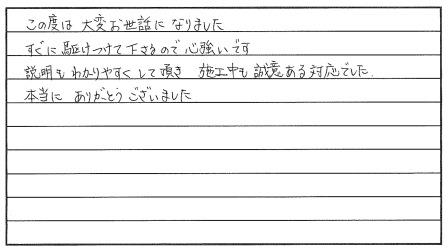 この度は 大変お世話に なりました
すぐに 駆けつけて下さるので 心強いです
説明も わかりやすく して頂き 施工中も 誠意ある対応でした.
本当に ありがとう ございました